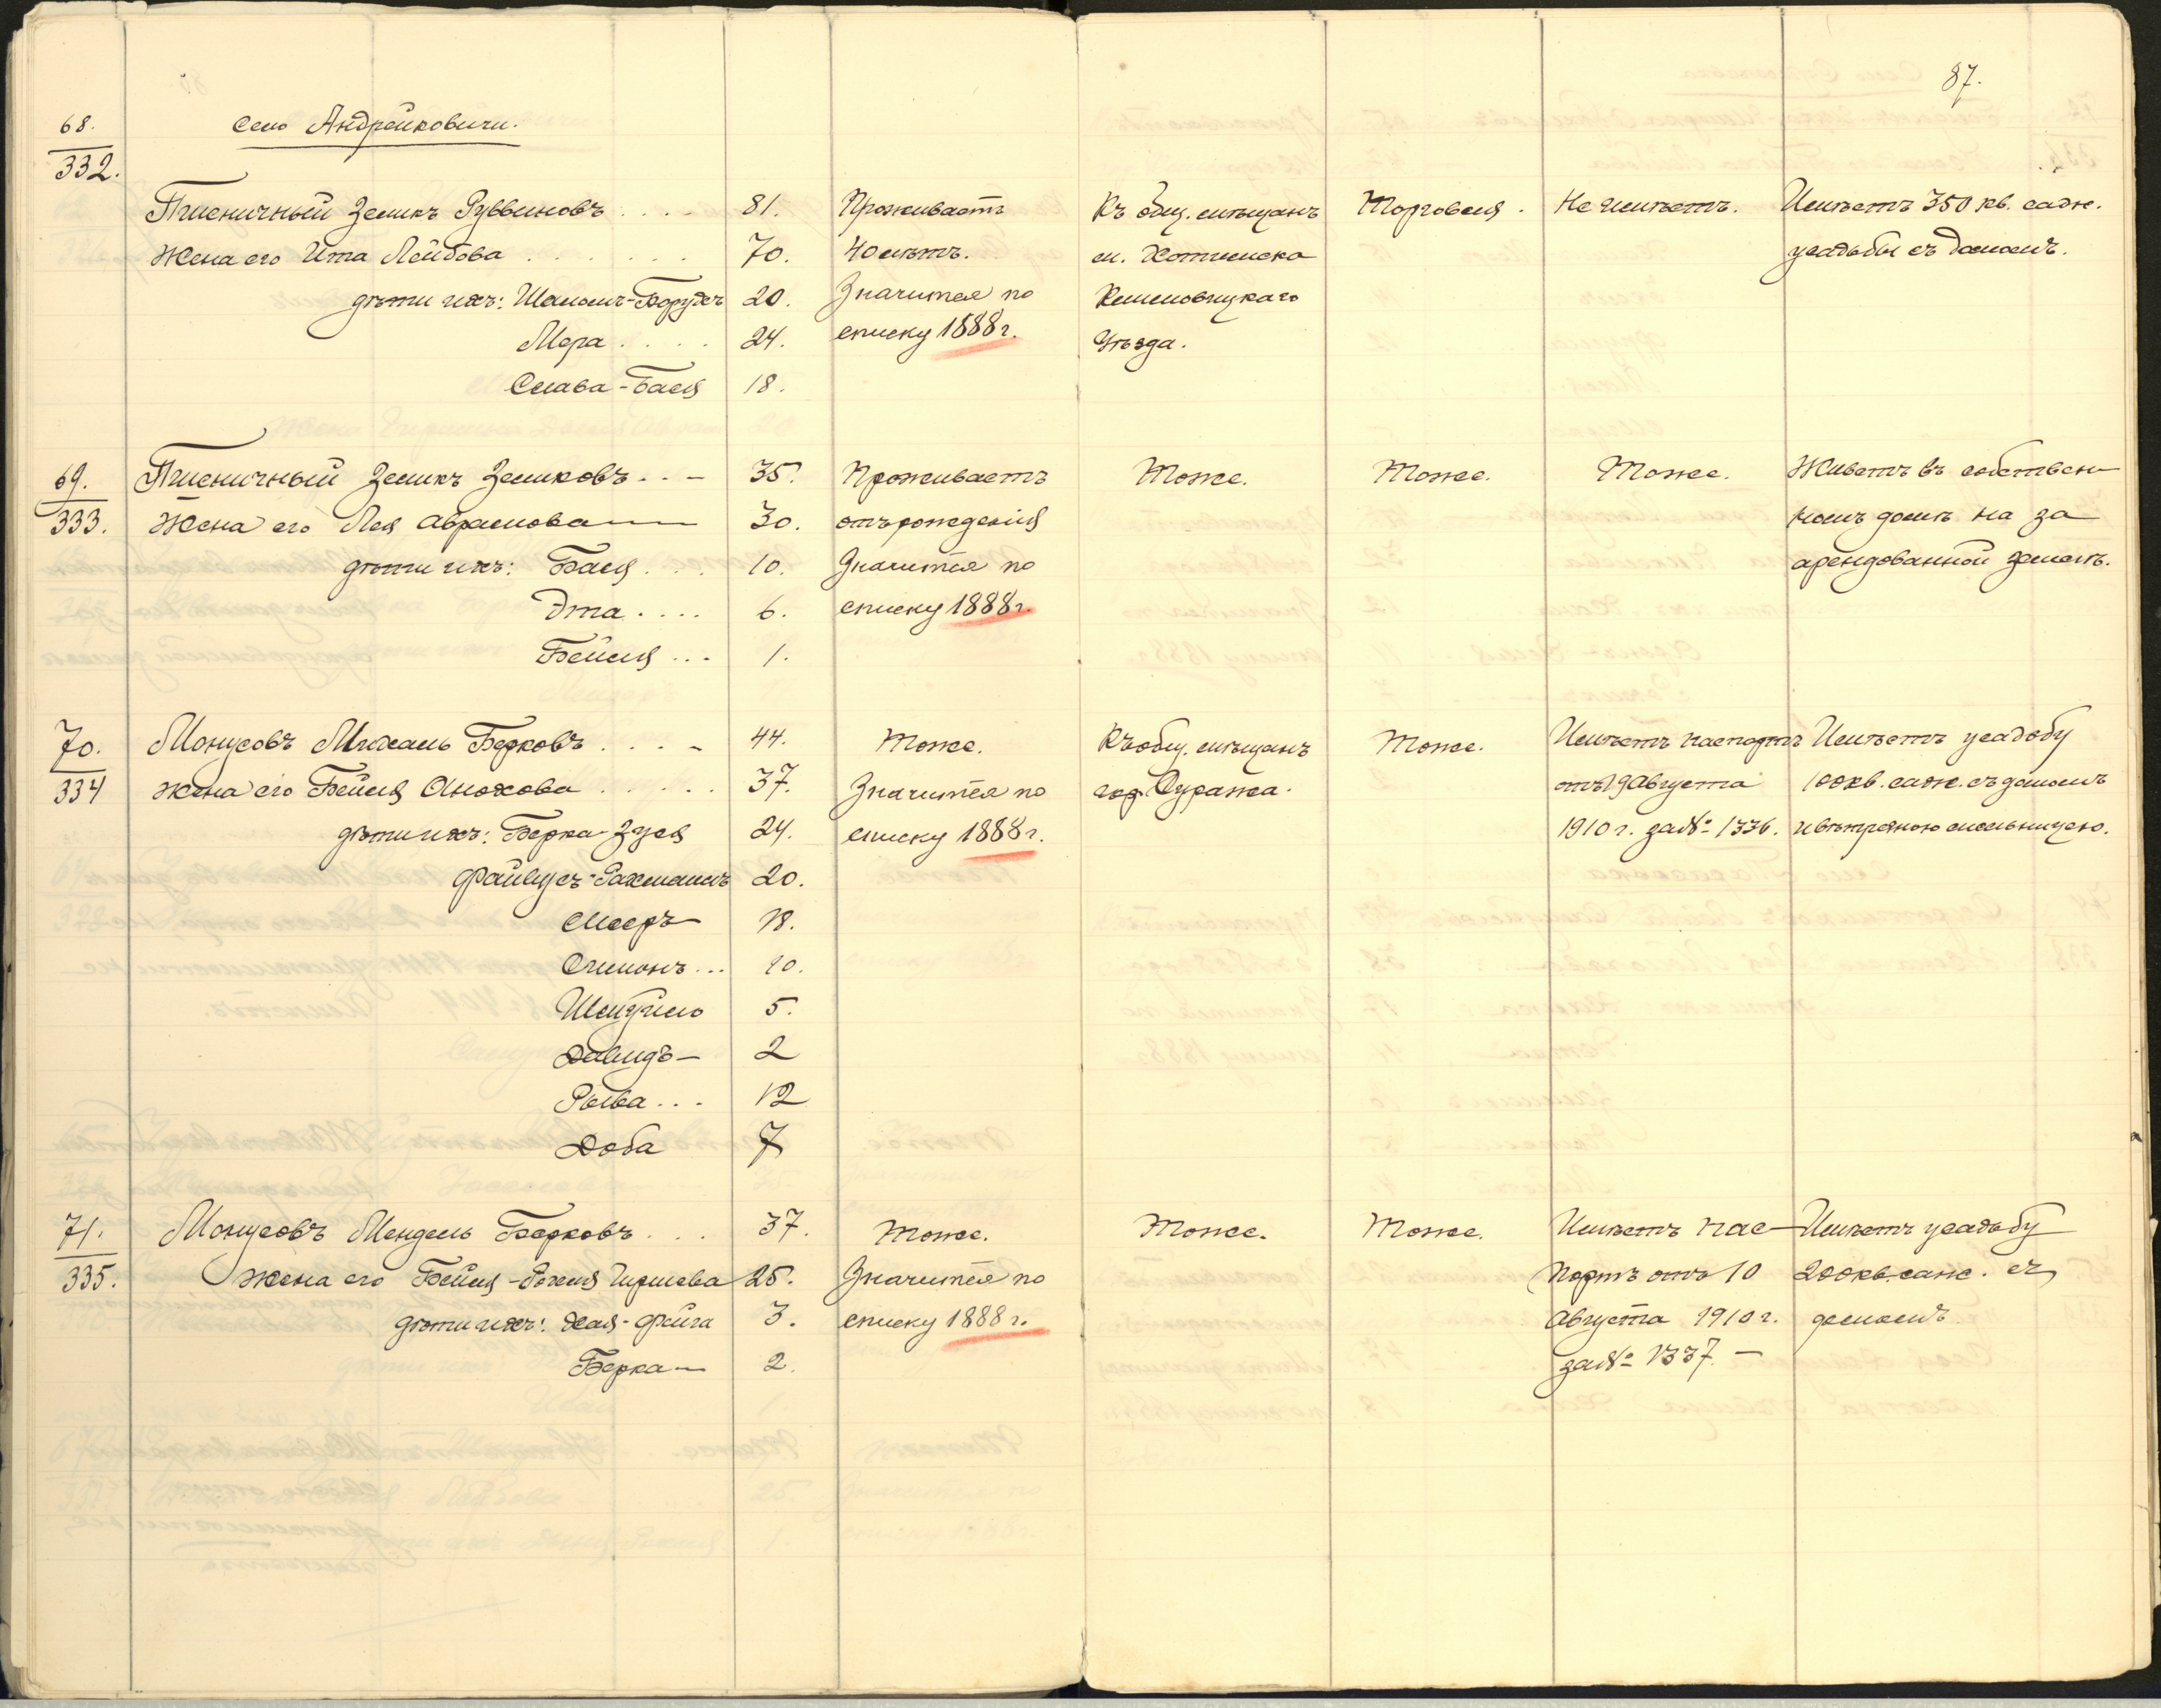 87.
68.
332.
село Андрейковичи.
Пшеничный Зеликъ Руввиновъ . . . . 81. Проживаетъ Къ общ. мѣщанъ Торговля . Не имѣетъ. Имѣетъ 350 кв. саж.
Жена его Ита Лейбова . . . . . . . 70. 40 лѣтъ. м. Хотимска усадьбы съ домомъ.
дѣти ихъ: Шоломъ-Борухъ 20. Значится по Климовицкаго
Мера . . . . 24. списку 1888 г. Уѣзда.
Слава-Бася 18.
69. Пшеничный Зеликъ Зеликовъ . . – 35. Проживаетъ Тоже. Тоже. Тоже. Живетъ въ собствен-
333. Жена его Лея Абрамова 30. отъ рожденія номъ домѣ на за
дѣти ихъ: Бася . . . 10. Значится по арендованной землѣ.
Эта . . . . 6. списку 1888 г.
Бейля . . . 1.
70. Монусовъ Михаль Берковъ . . . – 44. Тоже. Къ общ. мѣщанъ Тоже. Имѣетъ паспортъ Имѣетъ усадьбу
334 жена его Бейля Анохова . . . . . 37. Значится по гор. Суража. отъ 19 Августа 100 кв. саж. съ домомъ
дѣти ихъ: Берка-Зуся 24. списку 1888 г. 1910 г. за № 1336. и вѣтряною мельницею.
Файвусъ-Рахмаиль 20.
Мееръ 18.
Симонъ . . . 10.
Шмуйло 5.
Давидъ – 2
Рыва . . . 12
Доба 7
71. Монусовъ Мендель Берковъ . . . 37. Тоже. Тоже. Тоже. Имѣетъ пас- Имѣетъ усадьбу
335. Жена его Бейля-Рохля Гиршева 25. Значится по портъ отъ 10 200 кв. саж. съ
дѣти ихъ: Хая-Фейга 3. списку 1888 г. Августа 1910 г. домомъ
Берка – 2. за № 1337. –